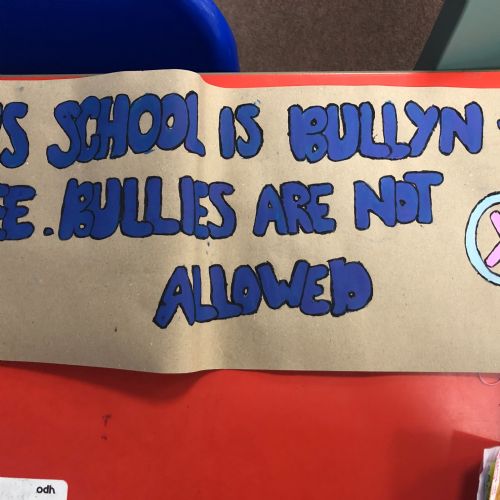 S SCHOOL IS BULLYN
EE. BULLIES ARE NOT
ALLOWED
odh